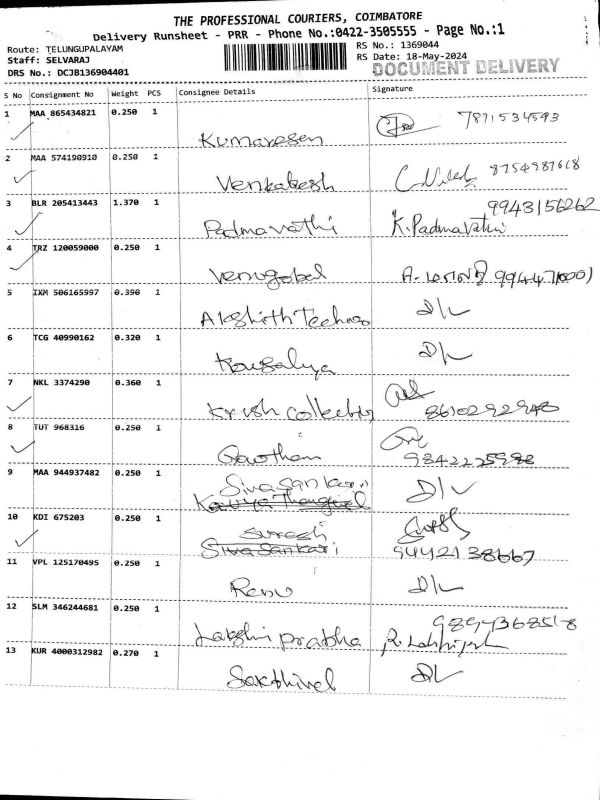 THE PROFESSIONAL COURIERS, COIMBATORE
Delivery Runsheet - PRR - Phone No.:0422-3505555 - Page No.:1
Route: TELUNGUPALAYAM
Staff: SELVARAJ
DRS No.: DCJB136904401
RS No.: 1369044
RS Date: 18-May-2024
DOCUMENT DELIVERY
S No Consignment No Weight PCS Consignee Details Signature
1 MAA 865434821 0.250 1
Kumaresen 7871534593
2 MAA 574190910 0.250 1
Venkatesh 8754987618
3 BLR 205413443 1.370 1 9943156262
Padmavathi K. Padmavathi
4 TRZ 120059000 0.250 1
Venugobal
5 IXM 506165997 0.390 1
D/L
6 TCG 40990162 0.320 1
Kousalya D/L
7 NKL 3374290 0.360 1
Krish 8610292948
8 TUT 968316 0.250 1
Gowtham
9 MAA 944937482 0.250 1
Sivasankari
D/L
10 KDI 675203 0.250 1
Suresh
Sivasankari 9442138667
11 VPL 125170495 0.250 1
Renu D/L
12 SLM 346244681 0.250 1
Lakshmi prabha
13 KUR 4000312982 0.270 1
Sakthivel D/L